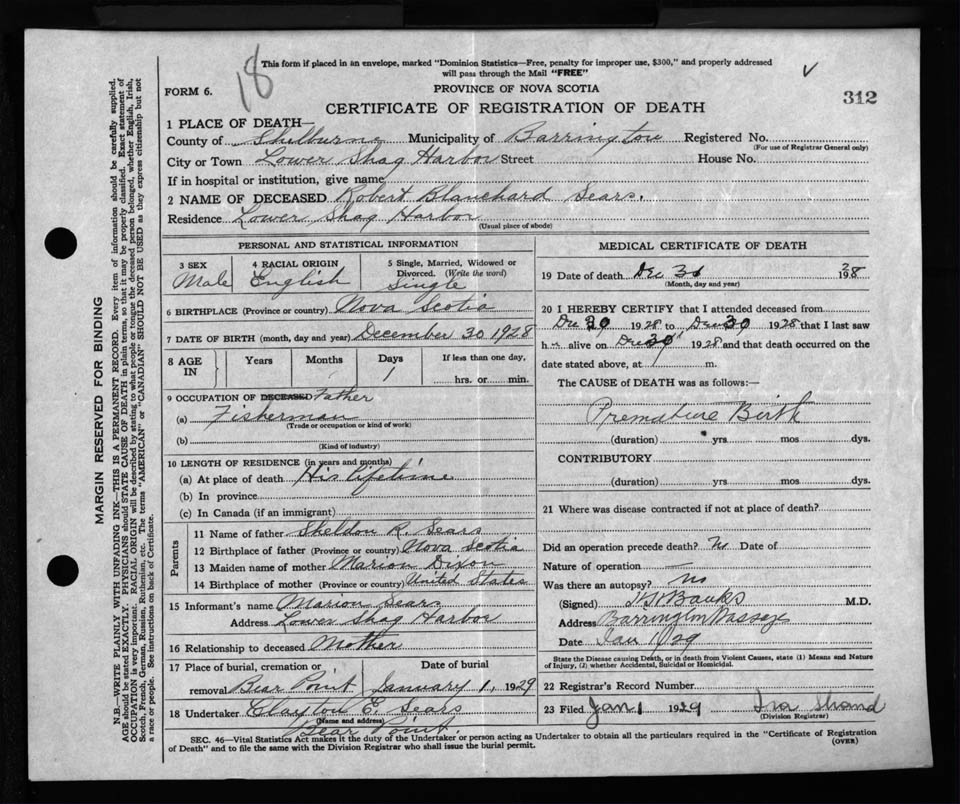 18
This form if placed in an envelope, marked "Dominion Statistics—Free, penalty for improper use, $300," and properly addressed
will pass through the Mail "FREE"
FORM 6.
PROVINCE OF NOVA SCOTIA
312
CERTIFICATE OF REGISTRATION OF DEATH
1 PLACE OF DEATH—
County of Shelburne Municipality of Barrington Registered No.
(For use of Registrar General only)
City or Town Lower Shag Harbor Street House No.
If in hospital or institution, give name
2 NAME OF DECEASED Robert Blanchard Sears.
Residence Lower Shag Harbor
(Usual place of abode)
PERSONAL AND STATISTICAL INFORMATION
3 SEX 4 RACIAL ORIGIN 5 Single, Married, Widowed or
Divorced. (Write the word)
Male English Single
6 BIRTHPLACE (Province or country) Nova Scotia
7 DATE OF BIRTH (month, day and year) December 30 1928
8 AGE IN Years Months Days If less than one day,
1 hrs. or min.
9 OCCUPATION OF DECEASED Father
(a) Fisherman
(Trade or occupation or kind of work)
(b)
(Kind of industry)
10 LENGTH OF RESIDENCE (in years and months)
(a) At place of death His lifetime
(b) In province
(c) In Canada (if an immigrant)
Parents
11 Name of father Sheldon R. Sears
12 Birthplace of father (Province or country) Nova Scotia
13 Maiden name of mother Marion Dixon
14 Birthplace of mother (Province or country) United States
15 Informant's name Marion Sears
Address Lower Shag Harbor
16 Relationship to deceased Mother
17 Place of burial, cremation or Date of burial
removal Bear Point January 1, 1929
18 Undertaker Clayton E. Sears
(Name and address)
Bear Point.
MEDICAL CERTIFICATE OF DEATH
19 Date of death Dec 1928
(Month, day and year)
20 I HEREBY CERTIFY that I attended deceased from
Dec 30 1928 to Dec 30 1928 that I last saw
h alive on Dec 30 1928 and that death occurred on the
date stated above, at m.
The CAUSE of DEATH was as follows:—
Premature Birth
(duration) yrs mos dys.
CONTRIBUTORY
(duration) yrs mos dys.
21 Where was disease contracted if not at place of death?
Did an operation precede death? No Date of
Nature of operation —
Was there an autopsy? no
(Signed) Banks M.D.
Address Barrington Passage
Date Jan 1/29
State the Disease causing Death, or in death from Violent Causes, state (1) Means and Nature
of Injury, (2) whether Accidental, Suicidal or Homicidal.
22 Registrar's Record Number
23 Filed Jan 1 1929 Ira Shand
(Division Registrar)
SEC. 46—Vital Statistics Act makes it the duty of the Undertaker or person acting as Undertaker to obtain all the particulars required in the "Certificate of Registration
of Death" and to file the same with the Division Registrar who shall issue the burial permit.
(OVER)
MARGIN RESERVED FOR BINDING
N.B.—WRITE PLAINLY WITH UNFADING INK—THIS IS A PERMANENT RECORD. Every item of information should be carefully supplied.
AGE should be stated EXACTLY. PHYSICIANS should STATE CAUSE OF DEATH in plain terms, so that it may be properly classified. Exact statement of
OCCUPATION is very important. RACIAL ORIGIN will be described by stating to what people or tongue the deceased person belonged, whether English, Irish,
Scotch, French, German, Russian, Ruthenian, etc. The terms "AMERICAN" or "CANADIAN" SHOULD NOT BE USED as they express citizenship but not
a race or people. See instructions on back of Certificate.